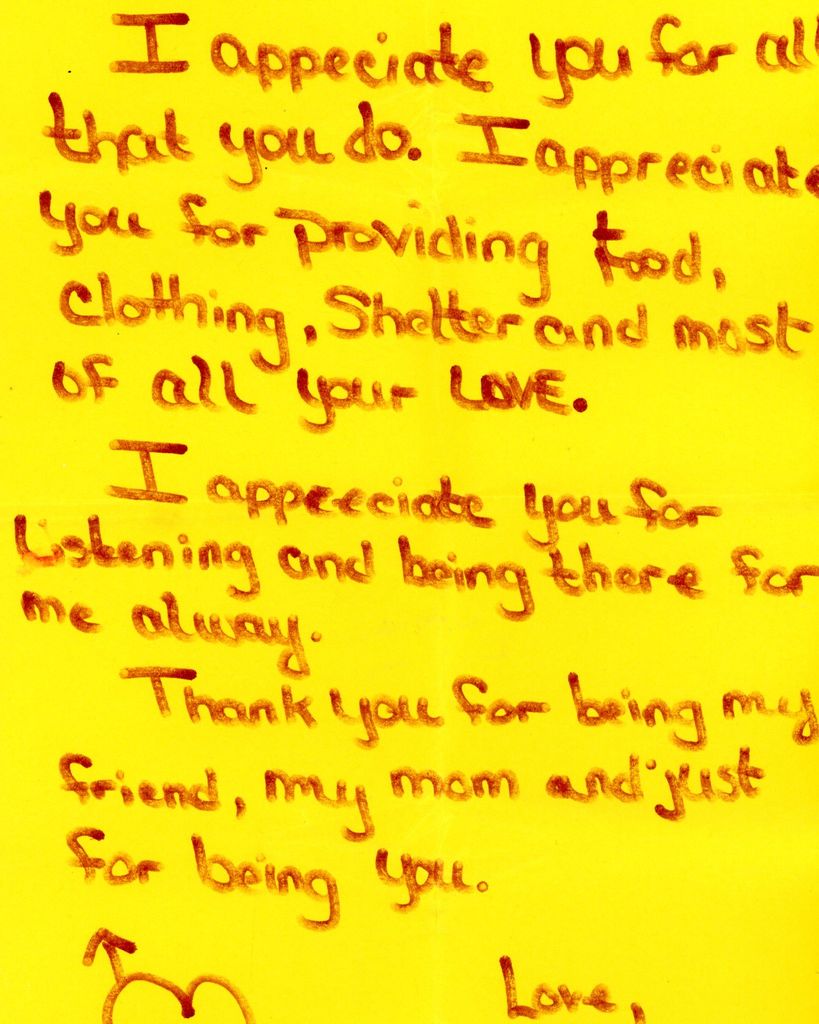 I appeciate you for all
that you do. I appreciate
you for providing food,
Clothing, Shelter and most
of all your LOVE.
I appreciate you for
Listening and being there for
me alway.
Thank you for being my
friend, my mom and just
for being you.
Love,